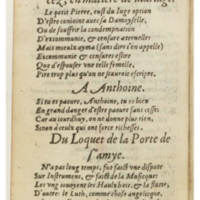 cez, en matiere de mariage.
Le petit Pierre, eust du Iuge option
D'estre conioinct auec sa Damoyselle,
Ou de souffrir la condemnation
D'excommunie, & censure eternelle:
Mais mieulx ayma (sans dire i'en appelle)
Excommunie, & censure estre
Que d'espouser vne telle femelle,
Pire trop plus qu'on ne sçauroit escripre.
A Anthoine.
Si tu es pauure, Anthoine, tu es bien
En grand danger d'estre pauure sans cesse:
Car auiourdhuy, on ne donne plus rien,
Sinon à ceulx qui ont force richesse.
Du Loquet de la Porte de
s'amye.
N'a pas long temps, fut faict vne dispute
Sur Instrumens, & faict de la Musique:
Les vng louoyent les Haulxbois, & la fluste,
D'autre: le Luth, comme chose angelicque,